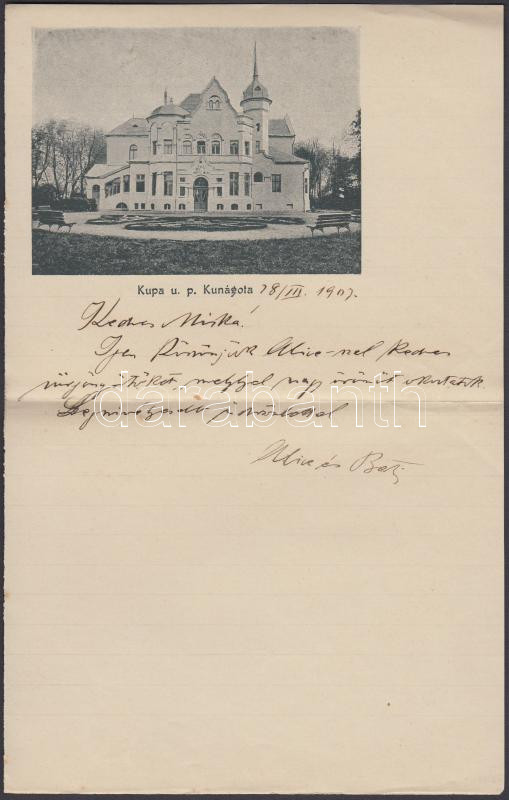 Kupa u. p. Kunágota 28/III. 1907.
Kedves Miska!
Igen köszönjük Alice-nel kedves
sürgönyötöket, melylyel nagy örömöt okoztatok.
Legszivélyesebb üdvözlettel
Alice és Béla
darabanth